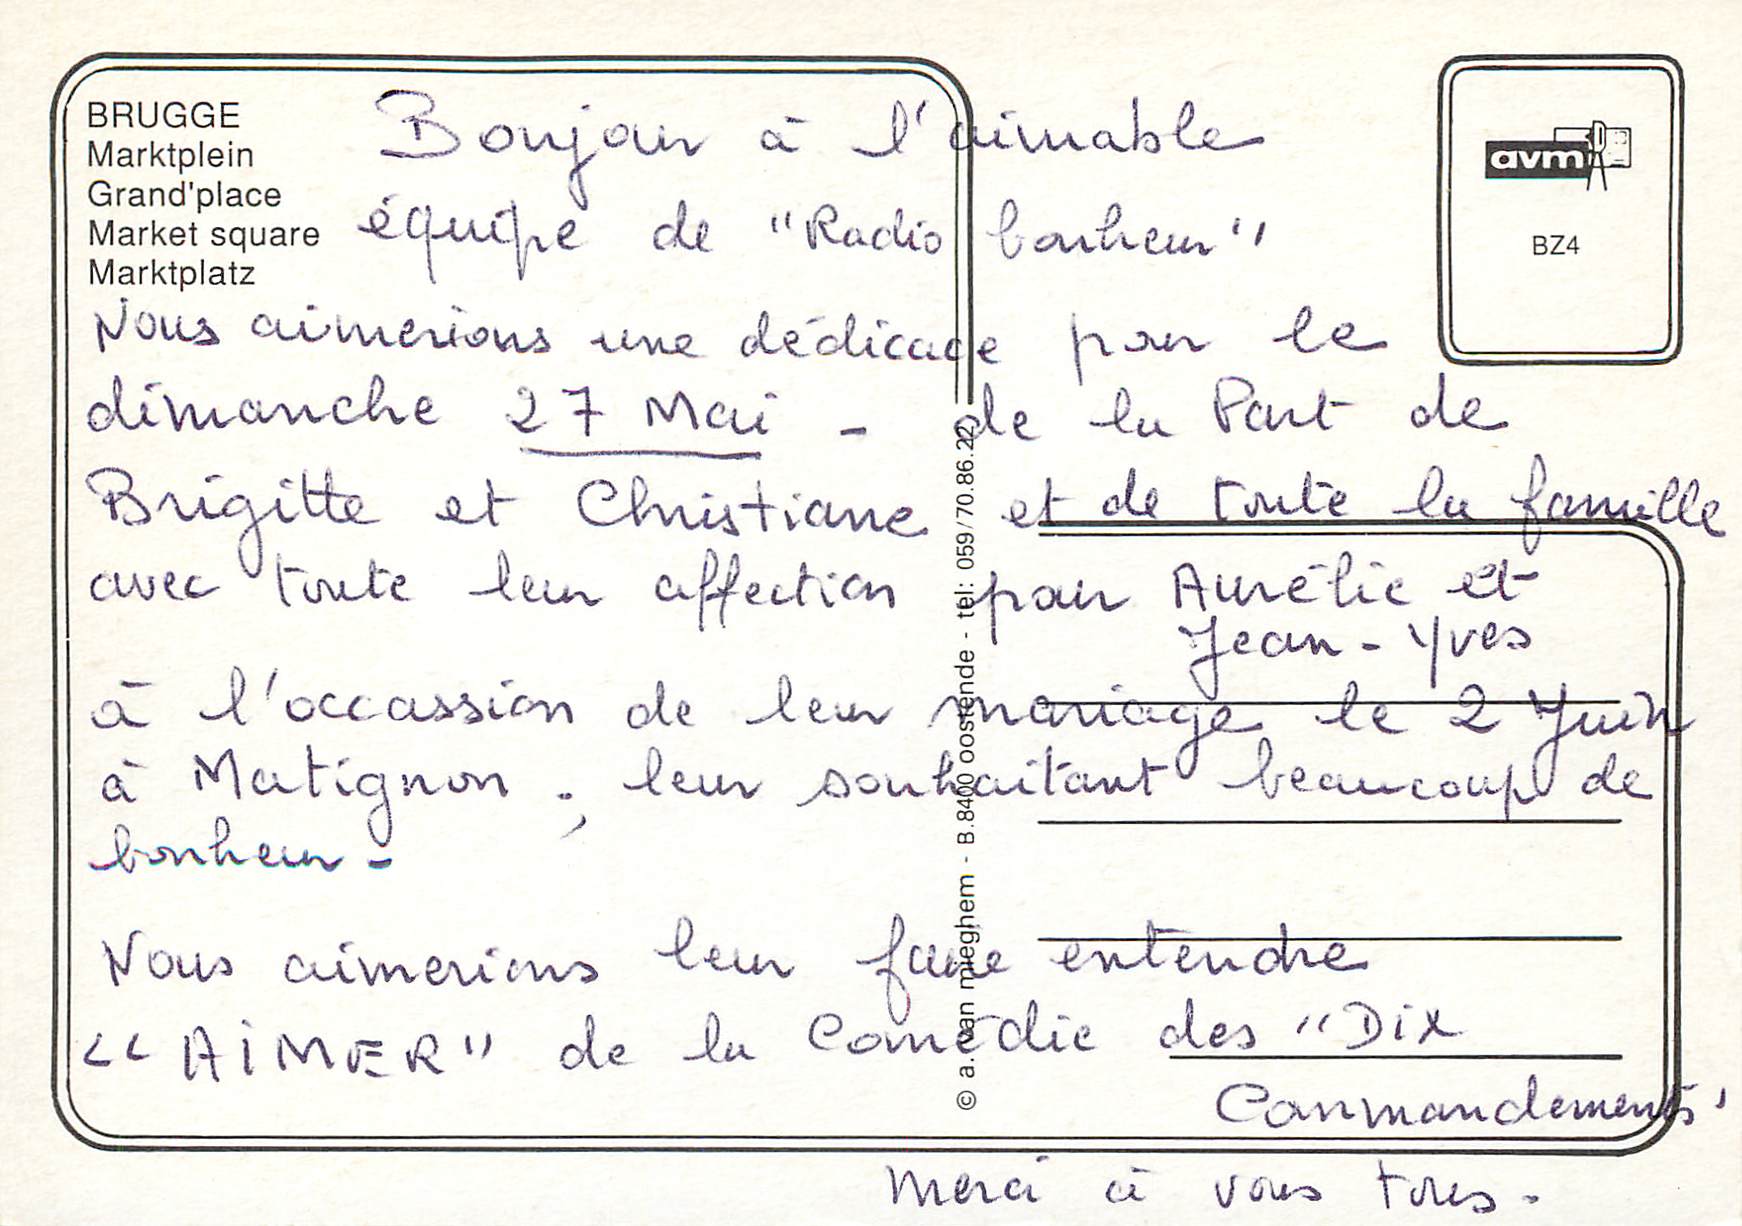 BRUGGE
Marktplein
Grand'place
Market square
Marktplatz
avm
BZ4
Bonjour à l'aimable
équipe de "Radio bonheur"
Nous aimerions une dédicace pour le
dimanche 27 Mai - de la Part de
Brigitte et Christiane et de toute la famille
avec toute leur affection pour Aurélie et
Jean-Yves
à l'occassion de leur mariage le 2 Juin
à Matignon ; leur souhaitant beaucoup de
bonheur -
Nous aimerions leur faire entendre
"AiMER" de la Comédie des "Dix
Commandements"
Merci à vous tous.
© a. van mieghem - B.8400 oostende - tel: 059/70.86.22